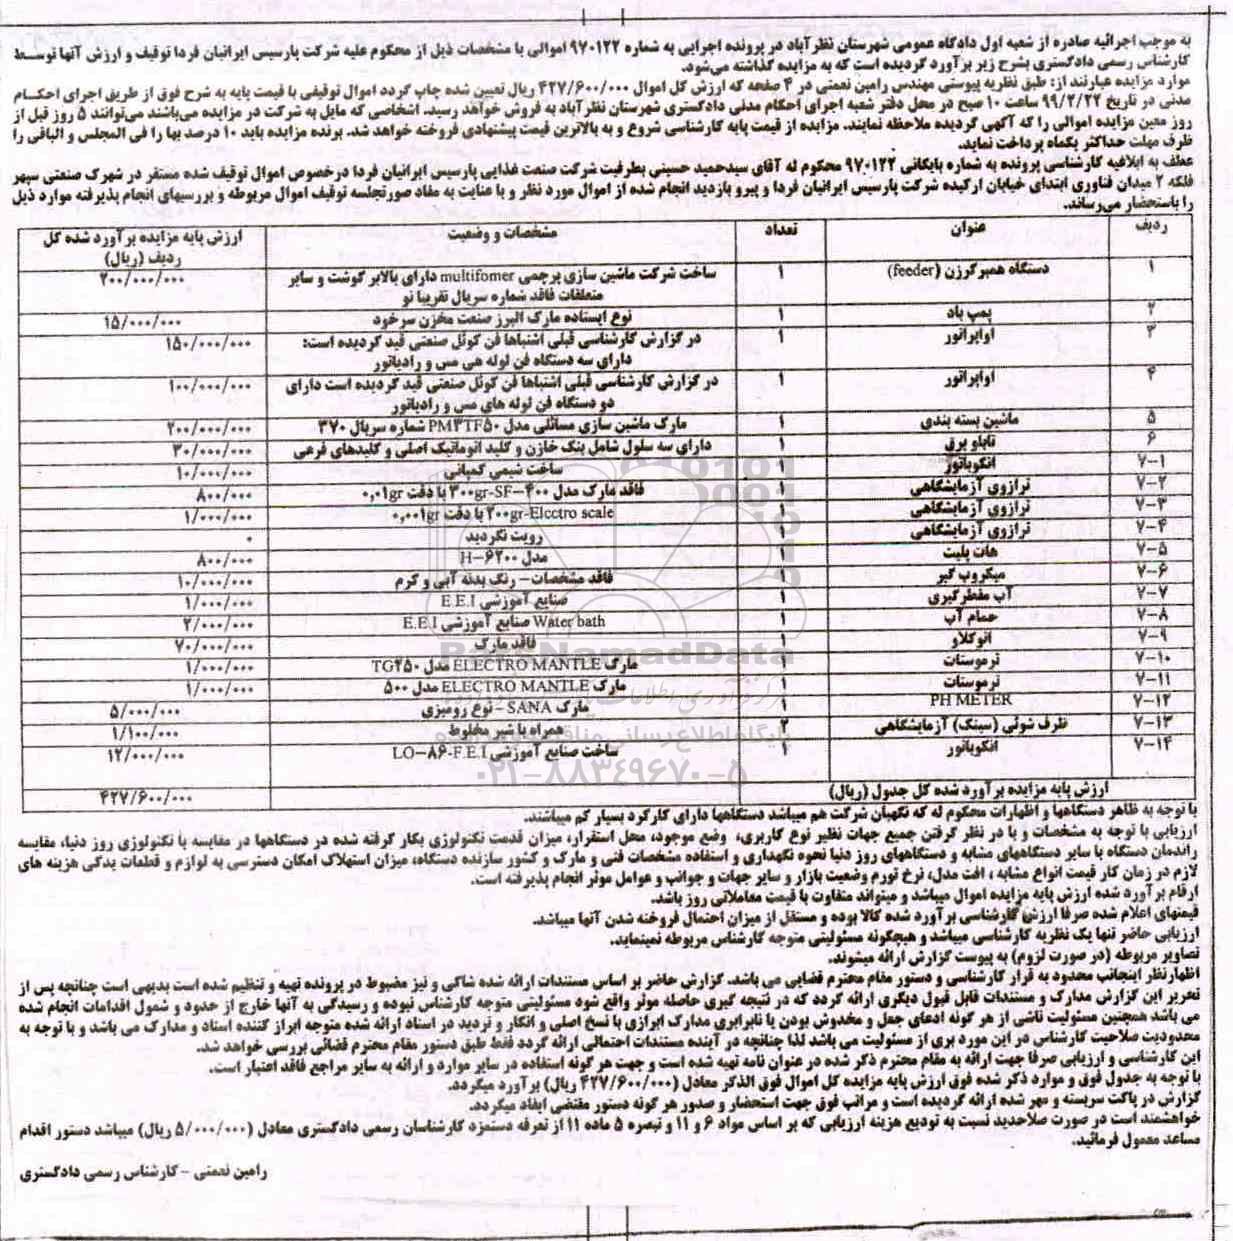 به موجب اجرائیه صادره از شعبه اول دادگاه عمومی شهرستان نظرآباد در پرونده اجرایی به شماره ۹۷۰۱۲۲ اموالی با مشخصات ذیل از محکوم علیه شرکت پارسیس ایرانیان فردا توقیف و ارزش آنها توسط
کارشناس رسمی دادگستری بشرح زیر برآورد گردیده است که به مزایده گذاشته می‌شود.
موارد مزایده عبارتند از: طبق نظریه پیوستی مهندس رامین نعمتی در ۴ صفحه که ارزش کل اموال ۴۲۷/۶۰۰/۰۰۰ ریال تعیین شده چاپ گردد اموال توقیفی با قیمت پایه به شرح فوق از طریق اجرای احکام
مدنی در تاریخ ۹۹/۲/۲۲ ساعت ۱۰ صبح در محل دفتر شعبه اجرای احکام مدنی دادگستری شهرستان نظرآباد به فروش خواهد رسید. اشخاصی که مایل به شرکت در مزایده می‌باشند می‌توانند ۵ روز قبل از
روز معین مزایده اموالی را که آگهی گردیده ملاحظه نمایند. مزایده از قیمت پایه کارشناسی شروع و به بالاترین قیمت پیشنهادی فروخته خواهد شد. برنده مزایده باید ۱۰ درصد بها را فی المجلس و الباقی را
ظرف مهلت حداکثر یکماه پرداخت نماید.
عطف به ابلاغیه کارشناسی پرونده به شماره بایگانی ۹۷۰۱۲۲ محکوم له آقای سیدحمید حسینی بطرفیت شرکت صنعت غذایی پارسیس ایرانیان فردا درخصوص اموال توقیف شده مستقر در شهرک صنعتی سپهر
فلکه ۲ میدان فناوری ابتدای خیابان ارکیده شرکت پارسیس ایرانیان فردا و پیرو بازدید انجام شده از اموال مورد نظر و با عنایت به مفاد صورتجلسه توقیف اموال مربوطه و بررسیهای انجام پذیرفته موارد ذیل
را باستحضار می‌رساند.
ردیف عنوان تعداد مشخصات و وضعیت ارزش پایه مزایده برآورد شده کل ردیف (ریال)
۱ دستگاه همبرگرزن (feeder) ۱ ساخت شرکت ماشین سازی پرچمی multifomer دارای بالابر گوشت و سایر ۲۰۰/۰۰۰/۰۰۰
متعلقات فاقد شماره سریال تقریبا نو
۲ پمپ باد ۱ نوع ایستاده مارک البرز صنعت مخزن سرخود ۱۵/۰۰۰/۰۰۰
۳ اواپراتور ۱ در گزارش کارشناسی قبلی اشتباها فن کوئل صنعتی قید گردیده است: ۱۵۰/۰۰۰/۰۰۰
دارای سه دستگاه فن لوله هی مس و رادیاتور
۴ اواپراتور ۱ در گزارش کارشناسی قبلی اشتباها فن کوئل صنعتی قید گردیده است دارای ۱۰۰/۰۰۰/۰۰۰
دو دستگاه فن لوله های مس و رادیاتور
۵ ماشین بسته بندی ۱ مارک ماشین سازی مسائلی مدل PM۳TF۵۰ شماره سریال ۳۷۰ ۲۰۰/۰۰۰/۰۰۰
۶ تابلو برق ۱ دارای سه سلول شامل بنک خازن و کلید اتوماتیک اصلی و کلیدهای فرعی ۳۰/۰۰۰/۰۰۰
۷-۱ انکوباتور ۱ ساخت شیمی کمپانی ۱۰/۰۰۰/۰۰۰
۷-۲ ترازوی آزمایشگاهی ۱ فاقد مارک مدل ۳۰۰gr-SF-۴۰۰ با دقت ۰,۰۱gr ۸۰۰/۰۰۰
۷-۳ ترازوی آزمایشگاهی ۱ ۲۰۰gr-Elcctro scale با دقت ۰,۰۰۱gr ۱/۰۰۰/۰۰۰
۷-۴ ترازوی آزمایشگاهی ۱ رویت نگردید ۰
۷-۵ هات پلیت ۱ مدل H-۶۲۰۰ ۸۰۰/۰۰۰
۷-۶ میکروب گیر ۱ فاقد مشخصات - رنگ بدنه آبی و کرم ۱۰/۰۰۰/۰۰۰
۷-۷ آب مقطرگیری ۱ صنایع آموزشی E.E.I ۱/۰۰۰/۰۰۰
۷-۸ حمام آب ۱ Water bath صنایع آموزشی E.E.I ۲/۰۰۰/۰۰۰
۷-۹ اتوکلاو ۱ فاقد مارک ۷۰/۰۰۰/۰۰۰
۷-۱۰ ترموستات ۱ مارک ELECTRO MANTLE مدل TG۲۵۰ ۱/۰۰۰/۰۰۰
۷-۱۱ ترموستات ۱ مارک ELECTRO MANTLE مدل ۵۰۰ ۱/۰۰۰/۰۰۰
۷-۱۲ PH METER ۱ مارک SANA - نوع رومیزی ۵/۰۰۰/۰۰۰
۷-۱۳ ظرف شوئی (سینک) آزمایشگاهی ۲ همراه با شیر مخلوط ۱/۱۰۰/۰۰۰
۷-۱۴ انکوباتور ۱ ساخت صنایع آموزشی LO-۸۶-F.E.I ۱۲/۰۰۰/۰۰۰
ارزش پایه مزایده برآورد شده کل جدول (ریال) ۴۲۷/۶۰۰/۰۰۰
ParsNamadData
پایگاه اطلاع رسانی
۰۲۱-۸۸۳۴۹۶۷۰-۵
با توجه به ظاهر دستگاهها و اظهارات محکوم له که نگهبان شرکت هم میباشد دستگاهها دارای کارکرد بسیار کم میباشند.
ارزیابی با توجه به مشخصات و با در نظر گرفتن جمیع جهات نظیر نوع کاربری، وضع موجود، محل استقرار، میزان قدمت تکنولوژی بکار گرفته شده در دستگاهها در مقایسه با تکنولوژی روز دنیا، مقایسه
راندمان دستگاه با سایر دستگاههای مشابه و دستگاههای روز دنیا نحوه نگهداری و استفاده مشخصات فنی و مارک و کشور سازنده دستگاه، میزان استهلاک امکان دسترسی به لوازم و قطعات یدکی هزینه های
لازم در زمان کار قیمت انواع مشابه ، افت مدل، نرخ تورم وضعیت بازار و سایر جهات و جوانب و عوامل موثر انجام پذیرفته است.
ارقام برآورد شده ارزش پایه مزایده اموال میباشد و میتواند متفاوت با قیمت معاملاتی روز باشد.
قیمتهای اعلام شده صرفا ارزش کارشناسی برآورد شده کالا بوده و مستقل از میزان احتمال فروخته شدن آنها میباشد.
ارزیابی حاضر تنها یک نظریه کارشناسی میباشد و هیچگونه مسئولیتی متوجه کارشناس مربوطه نمینماید.
تصاویر مربوطه (در صورت لزوم) به پیوست گزارش ارائه میشوند.
اظهارنظر اینجانب محدود به قرار کارشناسی و دستور مقام محترم قضایی می باشد. گزارش حاضر بر اساس مستندات ارائه شده شاکی و نیز مضبوط در پرونده تهیه و تنظیم شده است بدیهی است چنانچه پس از
تحریر این گزارش مدارک و مستندات قابل قبول دیگری ارائه گردد که در نتیجه گیری حاصله موثر واقع شود مسئولیتی متوجه کارشناس نبوده و رسیدگی به آنها خارج از حدود و شمول اقدامات انجام شده
می باشد همچنین مسئولیت ناشی از هر گونه ادعای جعل و مخدوش بودن یا نابرابری مدارک ابرازی با نسخ اصلی و انکار و تردید در اسناد ارائه شده متوجه ابراز کننده اسناد و مدارک می باشد و با توجه به
محدودیت صلاحیت کارشناس در این مورد بری از مسئولیت می باشد لذا چنانچه در آینده مستندات احتمالی ارائه گردد فقط طبق دستور مقام محترم قضائی بررسی خواهد شد.
این کارشناسی و ارزیابی صرفا جهت ارائه به مقام محترم ذکر شده در عنوان نامه تهیه شده است و جهت هر گونه استفاده در سایر موارد و ارائه به سایر مراجع فاقد اعتبار است.
با توجه به جدول فوق و موارد ذکر شده فوق ارزش پایه مزایده کل اموال فوق الذکر معادل (۴۲۷/۶۰۰/۰۰۰ ریال) برآورد میگردد.
گزارش در پاکت سربسته و مهر شده ارائه گردیده است و مراتب فوق جهت استحضار و صدور هر گونه دستور مقتضی ایفاد میگردد.
خواهشمند است در صورت صلاحدید نسبت به تودیع هزینه ارزیابی که بر اساس مواد ۶ و ۱۱ و تبصره ۵ ماده ۱۱ از تعرفه دستمزد کارشناسان رسمی دادگستری معادل (۵/۰۰۰/۰۰۰ ریال) میباشد دستور اقدام
مساعد معمول فرمائید.
رامین نعمتی - کارشناس رسمی دادگستری